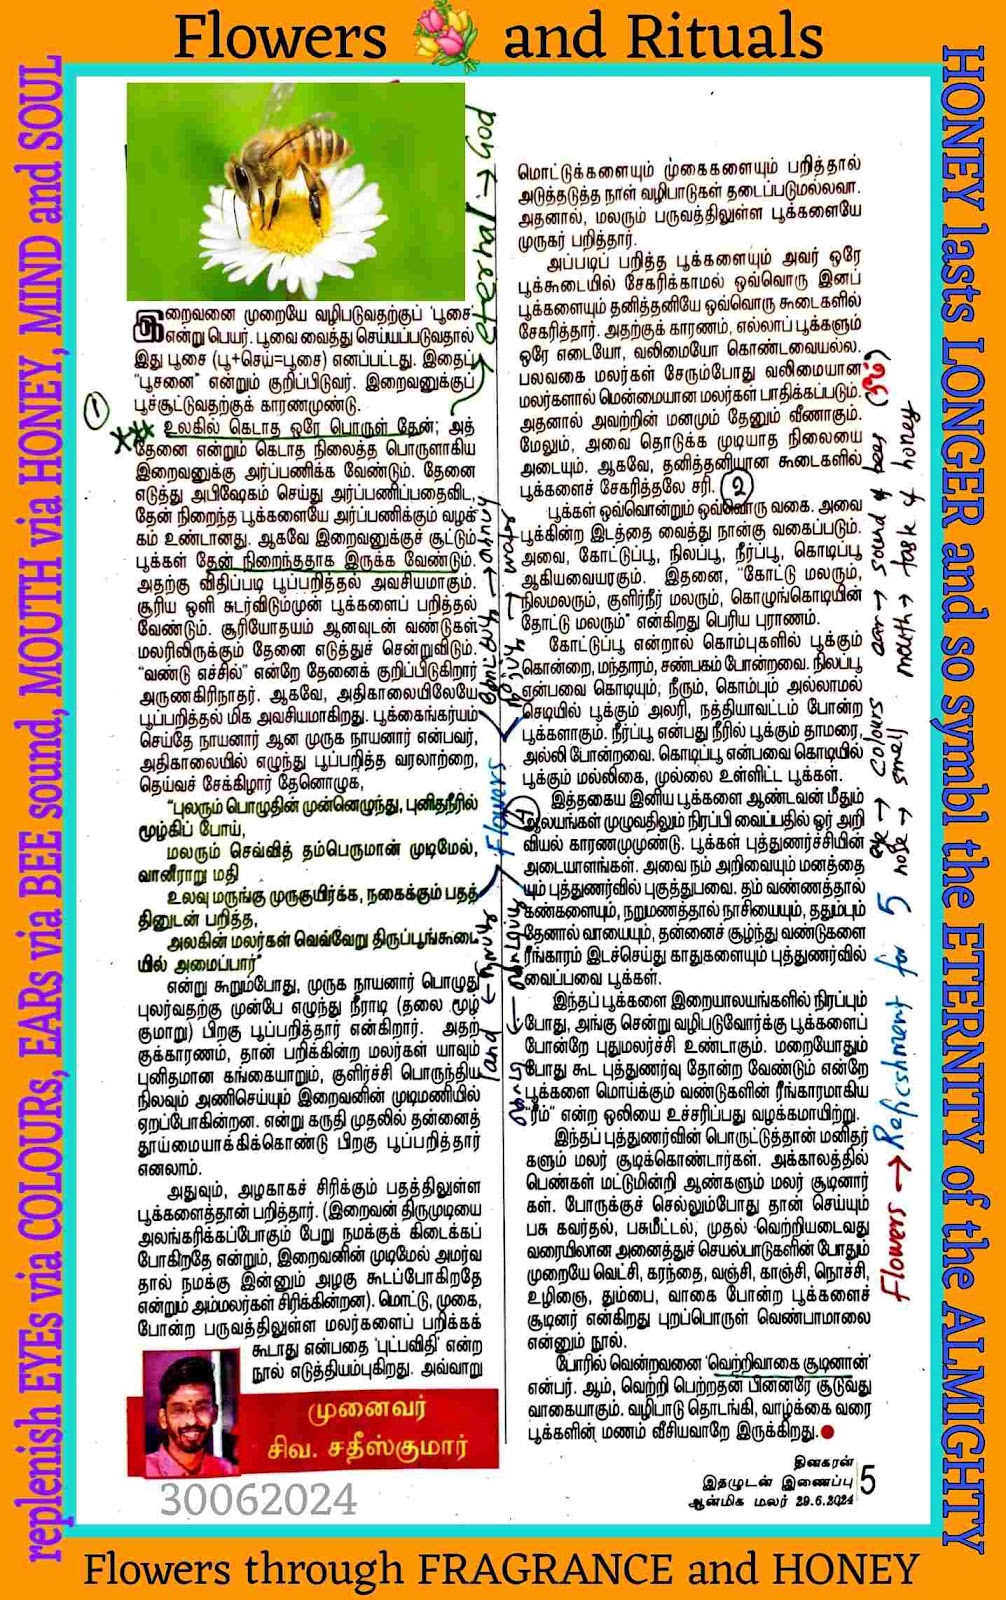 Flowers and Rituals
replenish EYEs via COLOURs, EARs via BEE sound, MOUTH via HONEY, MIND and SOUL
HONEY lasts LONGER and so symbl the ETERNITY of the ALMIGHTY
eternal → God
இறைவனை முறையே வழிபடுவதற்குப் 'பூசை'
என்று பெயர். பூவை வைத்து செய்யப்படுவதால்
இது பூசை (பூ+செய்=பூசை) எனப்பட்டது. இதைப்
"பூசனை" என்றும் குறிப்பிடுவர். இறைவனுக்குப்
பூச்சூட்டுவதற்குக் காரணமுண்டு.
1
உலகில் கெடாத ஒரே பொருள் தேன்; அத்
தேனை என்றும் கெடாத நிலைத்த பொருளாகிய
இறைவனுக்கு அர்ப்பணிக்க வேண்டும். தேனை
எடுத்து அபிஷேகம் செய்து அர்ப்பணிப்பதைவிட,
தேன் நிறைந்த பூக்களையே அர்ப்பணிக்கும் வழக்
கம் உண்டானது. ஆகவே இறைவனுக்குச் சூட்டும்
பூக்கள் தேன் நிறைந்ததாக இருக்க வேண்டும்.
அதற்கு விதிப்படி பூப்பறித்தல் அவசியமாகும்.
சூரிய ஒளி சுடர்விடும்முன் பூக்களைப் பறித்தல்
வேண்டும். சூரியோதயம் ஆனவுடன் வண்டுகள்
மலரிலிருக்கும் தேனை எடுத்துச் சென்றுவிடும்.
"வண்டு எச்சில்" என்றே தேனைக் குறிப்பிடுகிறார்
அருணகிரிநாதர். ஆகவே, அதிகாலையிலேயே
பூப்பறித்தல் மிக அவசியமாகிறது. பூக்கைங்கர்யம்
செய்தே நாயனார் ஆன முருக நாயனார் என்பவர்,
அதிகாலையில் எழுந்து பூப்பறித்த வரலாற்றை,
தெய்வச் சேக்கிழார் தேனொழுக,
"புலரும் பொழுதின் முன்னெழுந்து, புனிதநீரில்
மூழ்கிப் போய்,
மலரும் செவ்வித் தம்பெருமான் முடிமேல்,
வானீராறு மதி
உலவு மருங்கு முருகுயிர்க்க, நகைக்கும் பதத்
தினுடன் பறித்த,
அலகின் மலர்கள் வெவ்வேறு திருப்பூங்கூடை
யில் அமைப்பார்"
என்று கூறும்போது, முருக நாயனார் பொழுது
புலர்வதற்கு முன்பே எழுந்து நீராடி (தலை மூழ்
குமாறு) பிறகு பூப்பறித்தார் என்கிறார். அதற்
குக்காரணம், தான் பறிக்கின்ற மலர்கள் யாவும்
புனிதமான கங்கையாறும், குளிர்ச்சி பொருந்திய
நிலவும் அணிசெய்யும் இறைவனின் முடிமணியில்
ஏறப்போகின்றன. என்று கருதி முதலில் தன்னைத்
தூய்மையாக்கிக்கொண்டு பிறகு பூப்பறித்தார்
எனலாம்.
அதுவும், அழகாகச் சிரிக்கும் பதத்திலுள்ள
பூக்களைத்தான் பறித்தார். (இறைவன் திருமுடியை
அலங்கரிக்கப்போகும் பேறு நமக்குக் கிடைக்கப்
போகிறதே என்றும், இறைவனின் முடிமேல் அமர்வ
தால் நமக்கு இன்னும் அழகு கூடப்போகிறதே
என்றும் அம்மலர்கள் சிரிக்கின்றன). மொட்டு, முகை,
போன்ற பருவத்திலுள்ள மலர்களைப் பறிக்கக்
கூடாது என்பதை 'புட்பவிதி' என்ற
நூல் எடுத்தியம்புகிறது. அவ்வாறு
முனைவர்
சிவ. சதீஸ்குமார்
30062024
மொட்டுக்களையும் முகைகளையும் பறித்தால்
அடுத்தடுத்த நாள் வழிபாடுகள் தடைப்படுமல்லவா.
அதனால், மலரும் பருவத்திலுள்ள பூக்களையே
முருகர் பறித்தார்.
அப்படிப் பறித்த பூக்களையும் அவர் ஒரே
பூக்கூடையில் சேகரிக்காமல் ஒவ்வொரு இனப்
பூக்களையும் தனித்தனியே ஒவ்வொரு கூடைகளில்
சேகரித்தார். அதற்குக் காரணம், எல்லாப் பூக்களும்
ஒரே எடையோ, வலிமையோ கொண்டவையல்ல.
பலவகை மலர்கள் சேரும்போது வலிமையான
மலர்களால் மென்மையான மலர்கள் பாதிக்கப்படும்.
அதனால் அவற்றின் மணமும் தேனும் வீணாகும்.
மேலும், அவை தொடுக்க முடியாத நிலையை
அடையும். ஆகவே, தனித்தனியான கூடைகளில்
பூக்களைச் சேகரித்தலே சரி. 2
பூக்கள் ஒவ்வொன்றும் ஒவ்வொரு வகை. அவை
பூக்கின்ற இடத்தை வைத்து நான்கு வகைப்படும்.
அவை, கோட்டுப்பூ, நிலப்பூ, நீர்ப்பூ, கொடிப்பூ
ஆகியவையரகும். இதனை, "கோட்டு மலரும்,
நிலமலரும், குளிர்நீர் மலரும், கொழுங்கொடியின்
தோட்டு மலரும்" என்கிறது பெரிய புராணம்.
கோட்டுப்பூ என்றால் கொம்புகளில் பூக்கும்
கொன்றை, மந்தாரம், சண்பகம் போன்றவை. நிலப்பூ
என்பவை கொடியும், நீரும், கொம்பும் அல்லாமல்
செடியில் பூக்கும் அலரி, நத்தியாவட்டம் போன்ற
பூக்களாகும். நீர்ப்பூ என்பது நீரில் பூக்கும் தாமரை,
அல்லி போன்றவை. கொடிப்பூ என்பவை கொடியில்
பூக்கும் மல்லிகை, முல்லை உள்ளிட்ட பூக்கள்.
இத்தகைய இனிய பூக்களை ஆண்டவன் மீதும்
ஆலயங்கள் முழுவதிலும் நிரப்பி வைப்பதில் ஓர் அறி
வியல் காரணமுமுண்டு. பூக்கள் புத்துணர்ச்சியின்
அடையாளங்கள். அவை நம் அறிவையும் மனத்தை
யும் புத்துணர்வில் புகுத்துபவை. தம் வண்ணத்தால்
கண்களையும், நறுமணத்தால் நாசியையும், ததும்பும்
தேனால் வாயையும், தன்னைச் சூழ்ந்து வண்டுகளை
ரீங்காரம் இடச்செய்து காதுகளையும் புத்துணர்வில்
வைப்பவை பூக்கள்.
இந்தப் பூக்களை இறையாலயங்களில் நிரப்பும்
போது, அங்கு சென்று வழிபடுவோர்க்கு பூக்களைப்
போன்றே புதுமலர்ச்சி உண்டாகும். மறையோதும்
போது கூட புத்துணர்வு தோன்ற வேண்டும் என்றே
பூக்களை மொய்க்கும் வண்டுகளின் ரீங்காரமாகிய
"ரீம்" என்ற ஒலியை உச்சரிப்பது வழக்கமாயிற்று.
இந்தப் புத்துணர்வின் பொருட்டுத்தான் மனிதர்
களும் மலர் சூடிக்கொண்டார்கள். அக்காலத்தில்
பெண்கள் மட்டுமின்றி ஆண்களும் மலர் சூடினார்
கள். போருக்குச் செல்லும்போது தான் செய்யும்
பசு கவர்தல், பசுமீட்டல், முதல் வெற்றியடைவது
வரையிலான அனைத்துச் செயல்பாடுகளின் போதும்
முறையே வெட்சி, கரந்தை, வஞ்சி, காஞ்சி, நொச்சி,
உழிஞை, தும்பை, வாகை போன்ற பூக்களைச்
சூடினர் என்கிறது புறப்பொருள் வெண்பாமாலை
என்னும் நூல்.
போரில் வென்றவனை 'வெற்றிவாகை சூடினான்'
என்பர். ஆம், வெற்றி பெற்றதன் பின்னரே சூடுவது
வாகையாகும். வழிபாடு தொடங்கி, வாழ்க்கை வரை
பூக்களின் மணம் வீசியவாறே இருக்கிறது.
தினகரன்
இதழுடன் இணைப்பு
ஆன்மிக மலர் 29.6.2024
5
Flowers
land ← நிலப்பூ
நீர்ப்பூ → water
Flowers → Refreshment for 5
eye → colours
nose → smell
ear → sound of bees (ரீம்)
mouth → taste of honey
Flowers through FRAGRANCE and HONEY